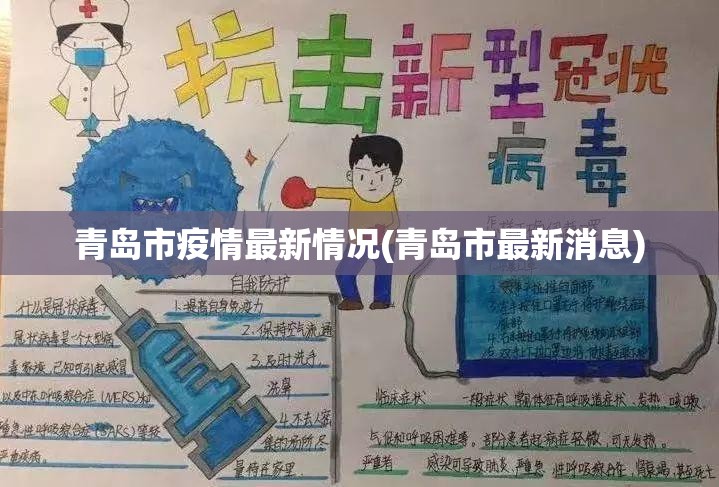 抗击新型冠状
病毒
青岛市疫情最新情况(青岛市最新消息)
自我防护
什么是冠状病毒?
冠状病毒是一个大型病
毒家族,已知可引起感冒
以及中东呼吸综合症(MERS)和
性呼吸综合症(SARS)等较
严重疾病。
1.提高自身免疫力
2.保持空气流通
3.及时洗手,
洗鼻
4.不去人密
集的场所尽
量待在家里.
临床症状 一般症状 发热、咳嗽、
气促和呼吸困难等。部分患者起病症轻微,可无发热。
严重者 感染可导致肺炎,严重急性呼吸综合征,肾衰竭,甚至死亡